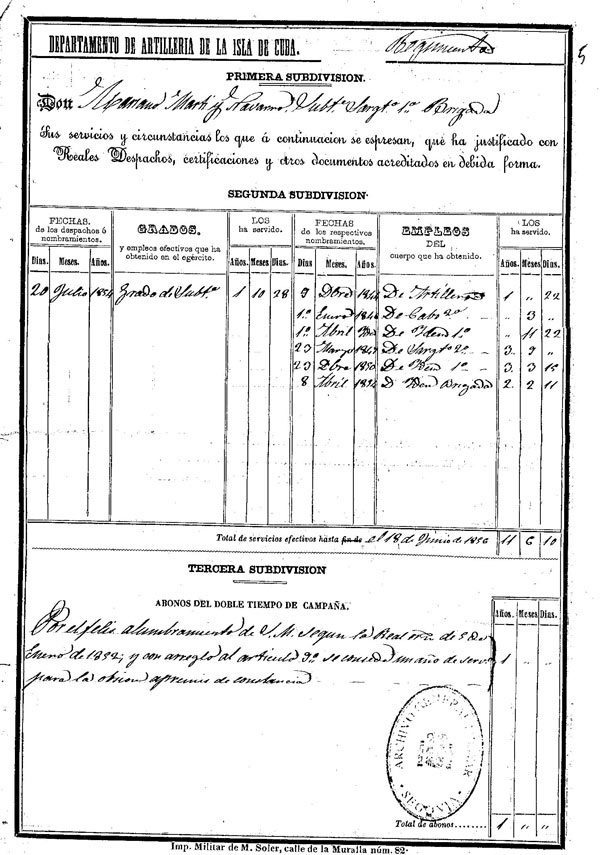 DEPARTAMENTO DE ARTILLERIA DE LA ISLA DE CUBA. Regimiento
5
PRIMERA SUBDIVISION.
Don Mariano Marti y Navarro, Subte. Sargto. 1o. Brigada
Sus servicios y circunstancias los que á continuacion se espresan, qué ha justificado con
Reales Despachos, certificaciones y otros documentos acreditados en debida forma.
SEGUNDA SUBDIVISION.
FECHAS. de los despachos ó nombramientos. GRADOS. y empleos efectivos que ha obtenido en el egército. LOS ha servido. FECHAS de los respectivos nombramientos. EMPLEOS DEL cuerpo que ha obtenido. LOS ha servido.
Dias. Meses. Años. Años. Meses Dias. Dias. Meses. Años. Años. Meses Dias.
20 Julio 1854 Grado de Subte. 1 10 28 9 Dbre 1844 De Artillero 1 „ 22
1o. Enero 1846 De Cabo 2o. „ 3 „
1o. Abril De Iden 1o. „ 11 22
23 Marzo 1847 De Sargto 2o. 3 9 „
23 Dbre 1850 De Iden 1o. 3 3 15
8 Abril 1854 D Iden Brigada 2 2 11
Total de servicios efectivos hasta fin de el 18 de Junio de 1856 11 6 10
TERCERA SUBDIVISION
ABONOS DEL DOBLE TIEMPO DE CAMPAÑA. Años. Meses Dias.
Por el felis alumbramiento de S. M. segun la Real orn. de 5 de
Enero de 1852; y con arreglo al articulo 3o. se concede un año de serv. 1 „ „
para la obcion a premios de constancia
ARCHIVO GENERAL MILITAR
SEGOVIA
Total de abonos....... 1 „ „
Imp. Militar de M. Soler, calle de la Muralla núm. 82.